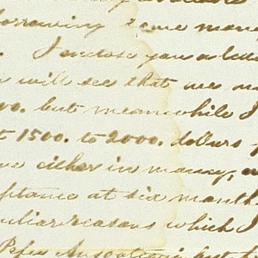 borrowing some mone
. I enclose you a lette
u will see that we m
00. but meanwhile I
t 1500. to 2000. dollars f
ne either in money, o
ptance at six month
uliar reasons which I